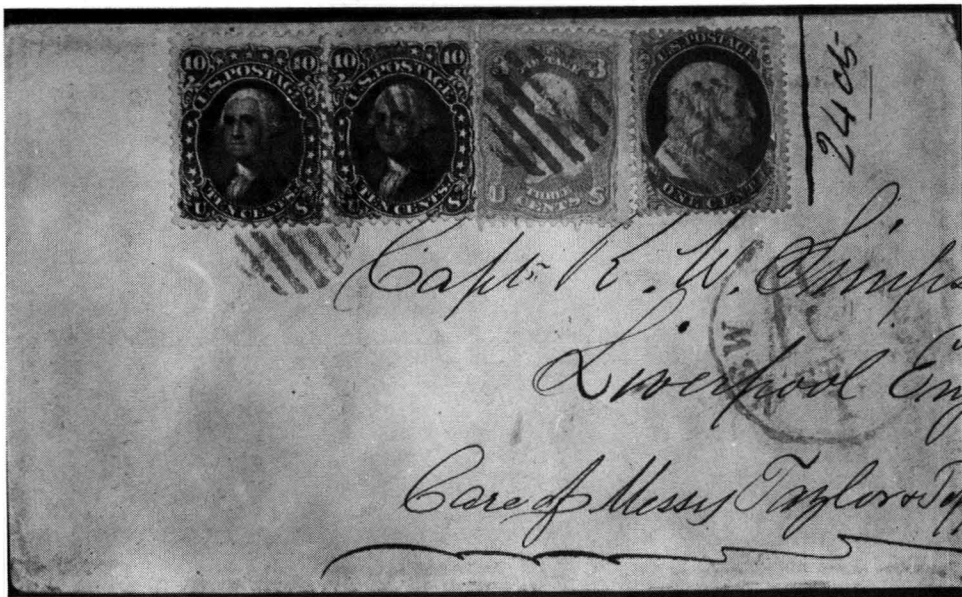 10 10
U.S. POSTAGE
TEN CENTS
U S
10 10
U.S. POSTAGE
TEN CENTS
U S
3 3
THREE
CENTS
U S
U.S. POSTAGE
ONE CENT
24 cts
Capt. R. W. Simps
Liverpool Eng
Care of Messrs Taylor &